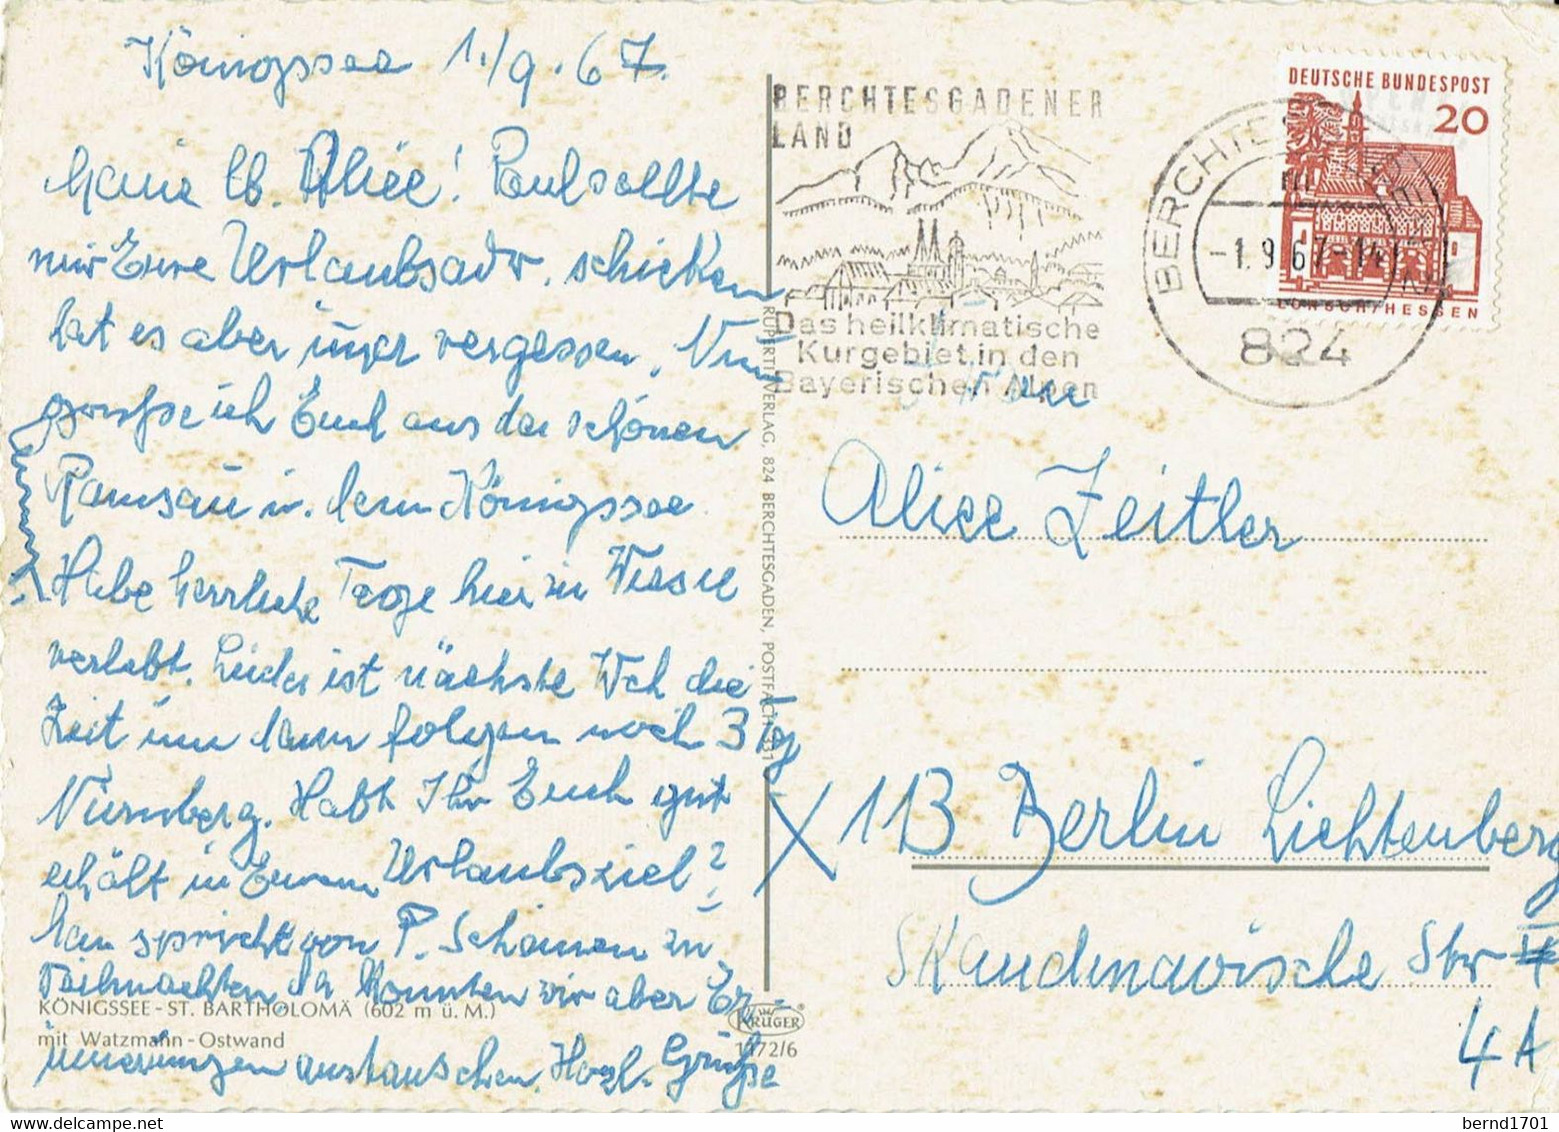 Königssee 1./9.67.
Meine lb. Alice! Paul sollte
mir Eure Urlaubsadr. schicken
hat es aber immer vergessen. Nun
grüße ich Euch aus der schönen
Ramsau u. dem Königssee
Habe herrliche Tage hier in
verlebt. Leider ist nächste Wch die
Zeit um dann folgen noch 3 Tg
Nürnberg. Habt Ihr Euch gut
erholt in Eurem Urlaubsziel?
Man spricht von P. Scheinen zu
Weihnachten, da könnten wir aber Er-
innerungen austauschen. Herzl. Grüße
KÖNIGSSEE - ST. BARTHOLOMÄ (602 m ü. M.)
mit Watzmann - Ostwand
RUPERTI VERLAG, 824 BERCHTESGADEN, POSTFACH 331
KRÜGER
1172/6
BERCHTESGADENER
LAND
Das heilklimatische
Kurgebiet in den
Bayerischen Alpen
DEUTSCHE BUNDESPOST
20
LORSCH/HESSEN
BERCHTESGADEN
-1.9.67-14
824
Frau
Alice Zeitler
X 113 Berlin Lichtenberg
Skandinavische Str
4 A
bernd1701